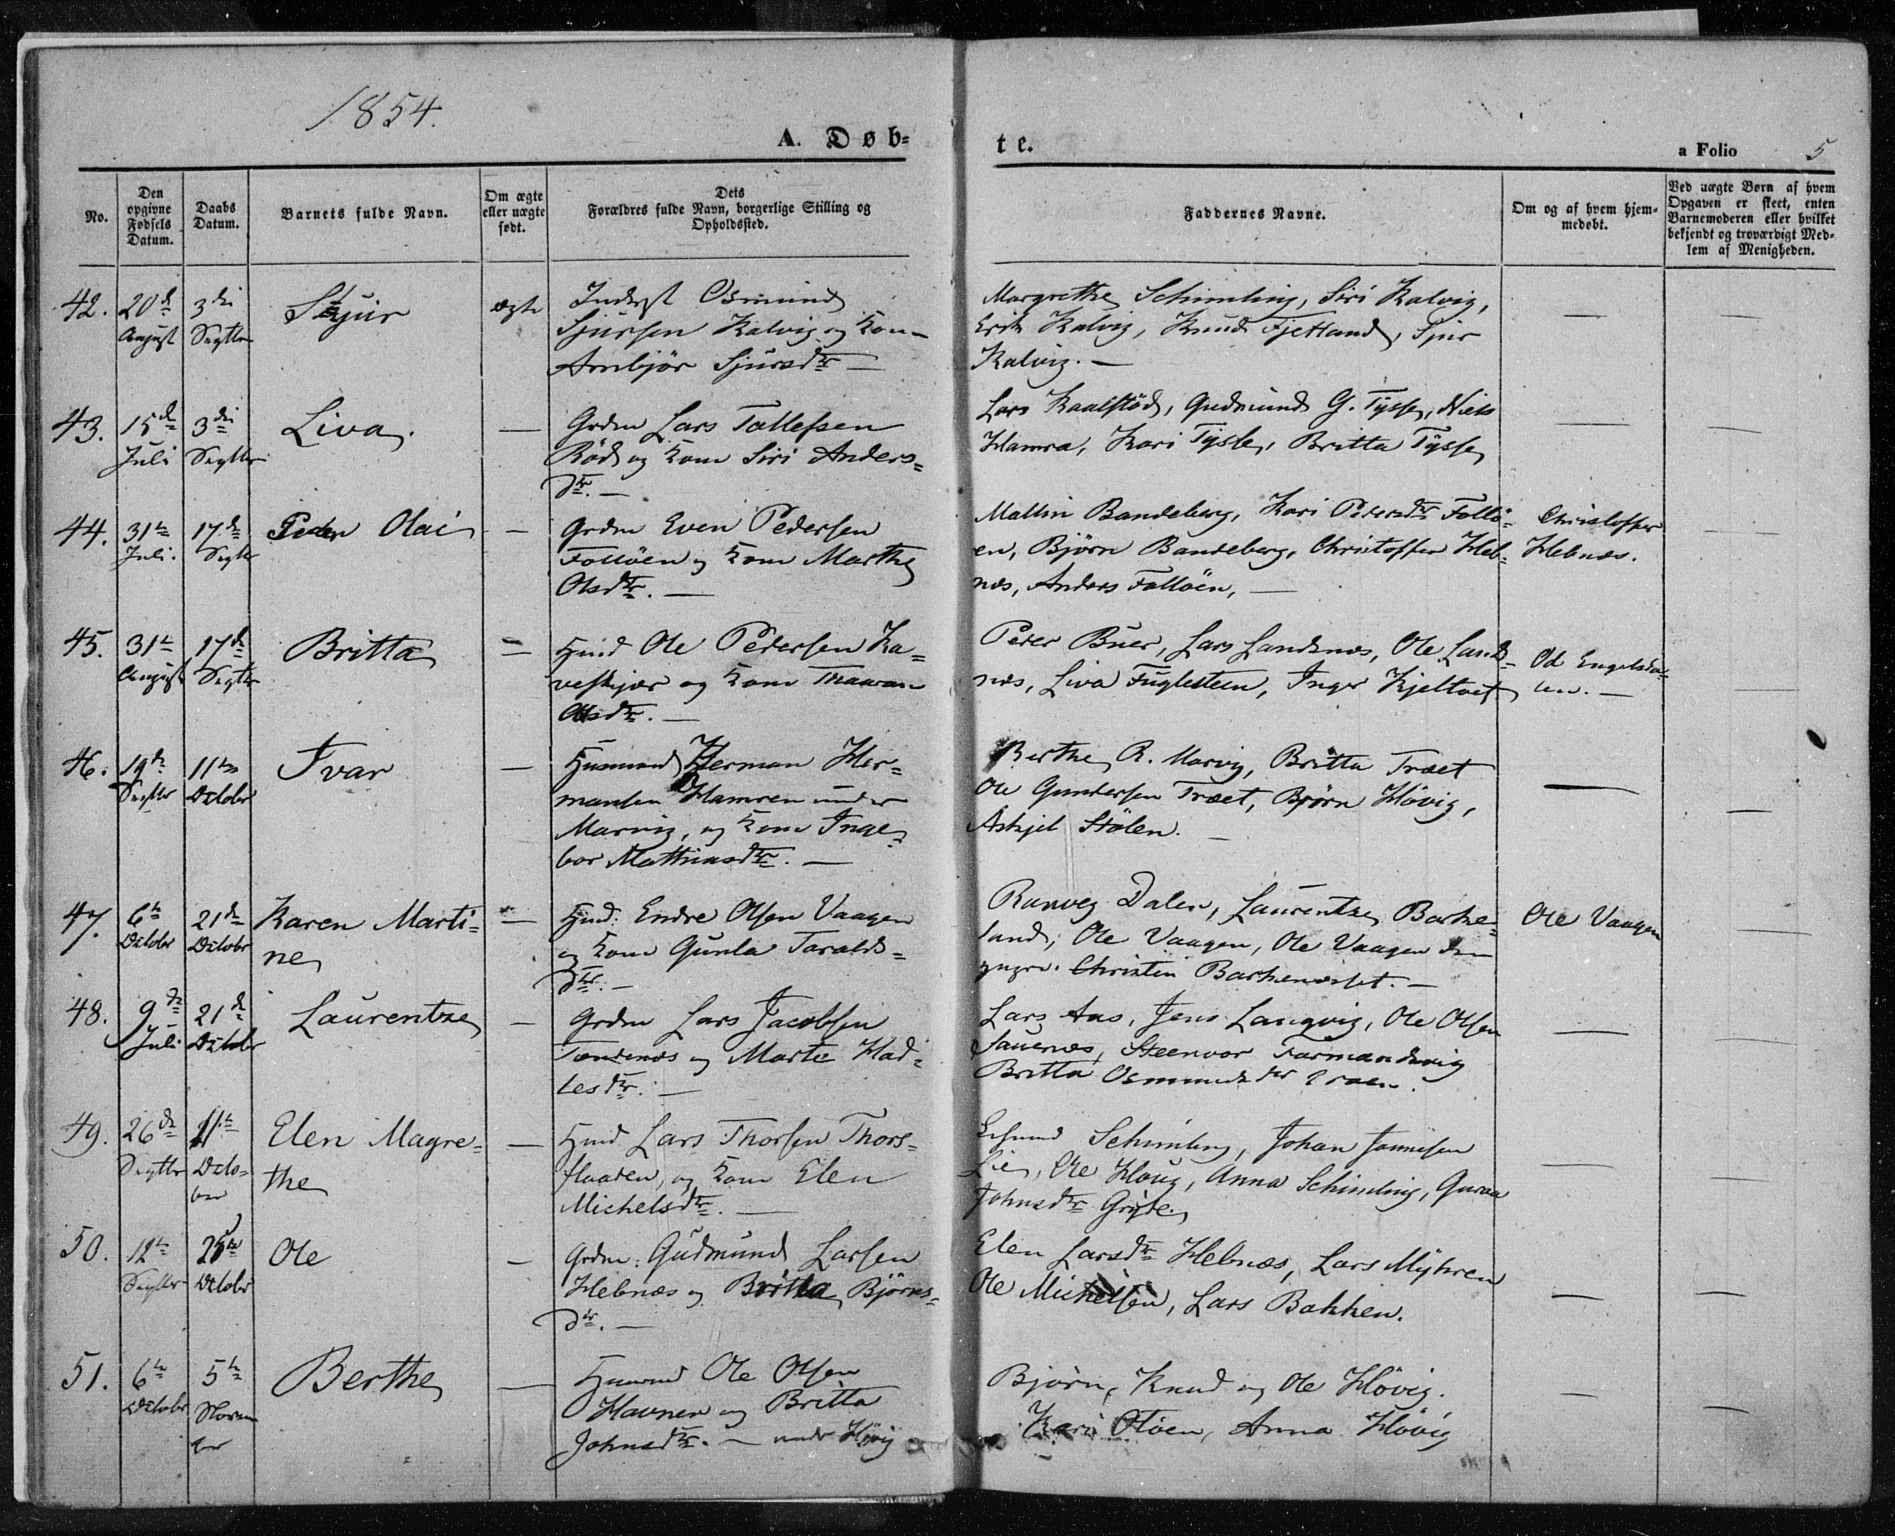 1854.
A. Døb-
te.
a Folio 5
No.
Den opgivne Fødsels Datum.
Daabs Datum.
Barnets fulde Navn.
Om ægte eller uægte født.
Dets Forældres fulde Navn, borgerlige Stilling og Opholdssted.
Faddernes Navne.
Om og af hvem hjemmedøbt.
Ved uægte Børn af hvem Opgaven er skeet, enten Barnemoderen eller hvilket bekjendt og troværdigt Medlem af Menigheden.
42. 20de August 3die Septbr Sjur ægte
Inderst Osmund
Sjursen Kalvig og Kone
Arnbjør Sjursdtr —
Margrethe Schimling, Siri Kalvig,
Erik Kalvig, Knud Fjetland, Sjur
Kalvig. —
43. 15de Juli 3die Septbr Liva. —
Grdm Lars Tollefsen
Rød og Kone Siri Anders-
dtr. —
Lars Kaalstød, Gudmund G. Tysse, Niels
Hamra, Kari Tysse, Britta Tysse
44. 31te Juli. 17de Septbr Peder Olai —
Grdm Even Pedersen
Folløen og Kone Marthe
Olsdtr. —
Mallin Bandeberg, Kari Pedersdtr Follø-
en, Bjørn Bandeberg, Christoffer Heb-
næs, Anders Folløen, —
Christoffer
Hebnæs.
45. 31te August 17de Septbr Britta —
Huusmd Ole Pedersen Ka-
veskjær og Kone
Olsdtr. —
Peder Buer, Lars Landsnæs, Ole Lands-
næs, Liva Fuglesteen, Inger Kjeltveit
Od Engelsda-
len. —
46. 19de Septbr 11te October Ivar —
Huusmand Herman Her-
mansen Hamren under
Marvig, og Kone Inge-
bor Mathiasdtr. —
Berthe R. Marvig, Britta Træet
Ole Gundersen Træet, Bjørn Høvig,
Askjel Stølen. —
47. 6te October 21de October Karen Marti-
ne —
Huusmd: Endre Olsen Vaagen
og Kone Gunla Taralds-
dtr. —
Ranveg Dalen, Laurentze Barke-
land, Ole Vaagen, Ole Vaagen den
yngre. Christin Barkenæsset. —
Ole Vaagen
48. 9de Juli 21de October Laurentze —
Grdm Lars Jacobsen
Tændenæs og Marte Had-
lesdtr. —
Lars Aas, Jens Langvig, Ole Olsen
Sauenæs, Steenvor Formandsvig
Britta Osmundsdtr
49. 26de Septbr 11te October Elen Magre-
the —
Huusmd Lars Thorsen Thors-
flaaden, og Kone Elen
Michelsdtr. —
Schimling, Johan Jonnesen
Lie, Ole Houg, Anna Schimling, Guroa
Johnsdtr Gryte
50. 12te Septbr 25de October Ole —
Grdm: Gudmund Larsen
Hebnæs og Britta Bjørns-
dtr. —
Elen Larsdtr Hebnæs, Lars Myhren
Ole Michelsen, Lars Bakken.
51. 6te October 5te November Berthe —
Huusmd Ole Olsen
Havnen og Britta
Johnsdtr. — under Høvig
Bjørn, Knud og Ole Høvig.
Kari Oløen, Anna Høvig